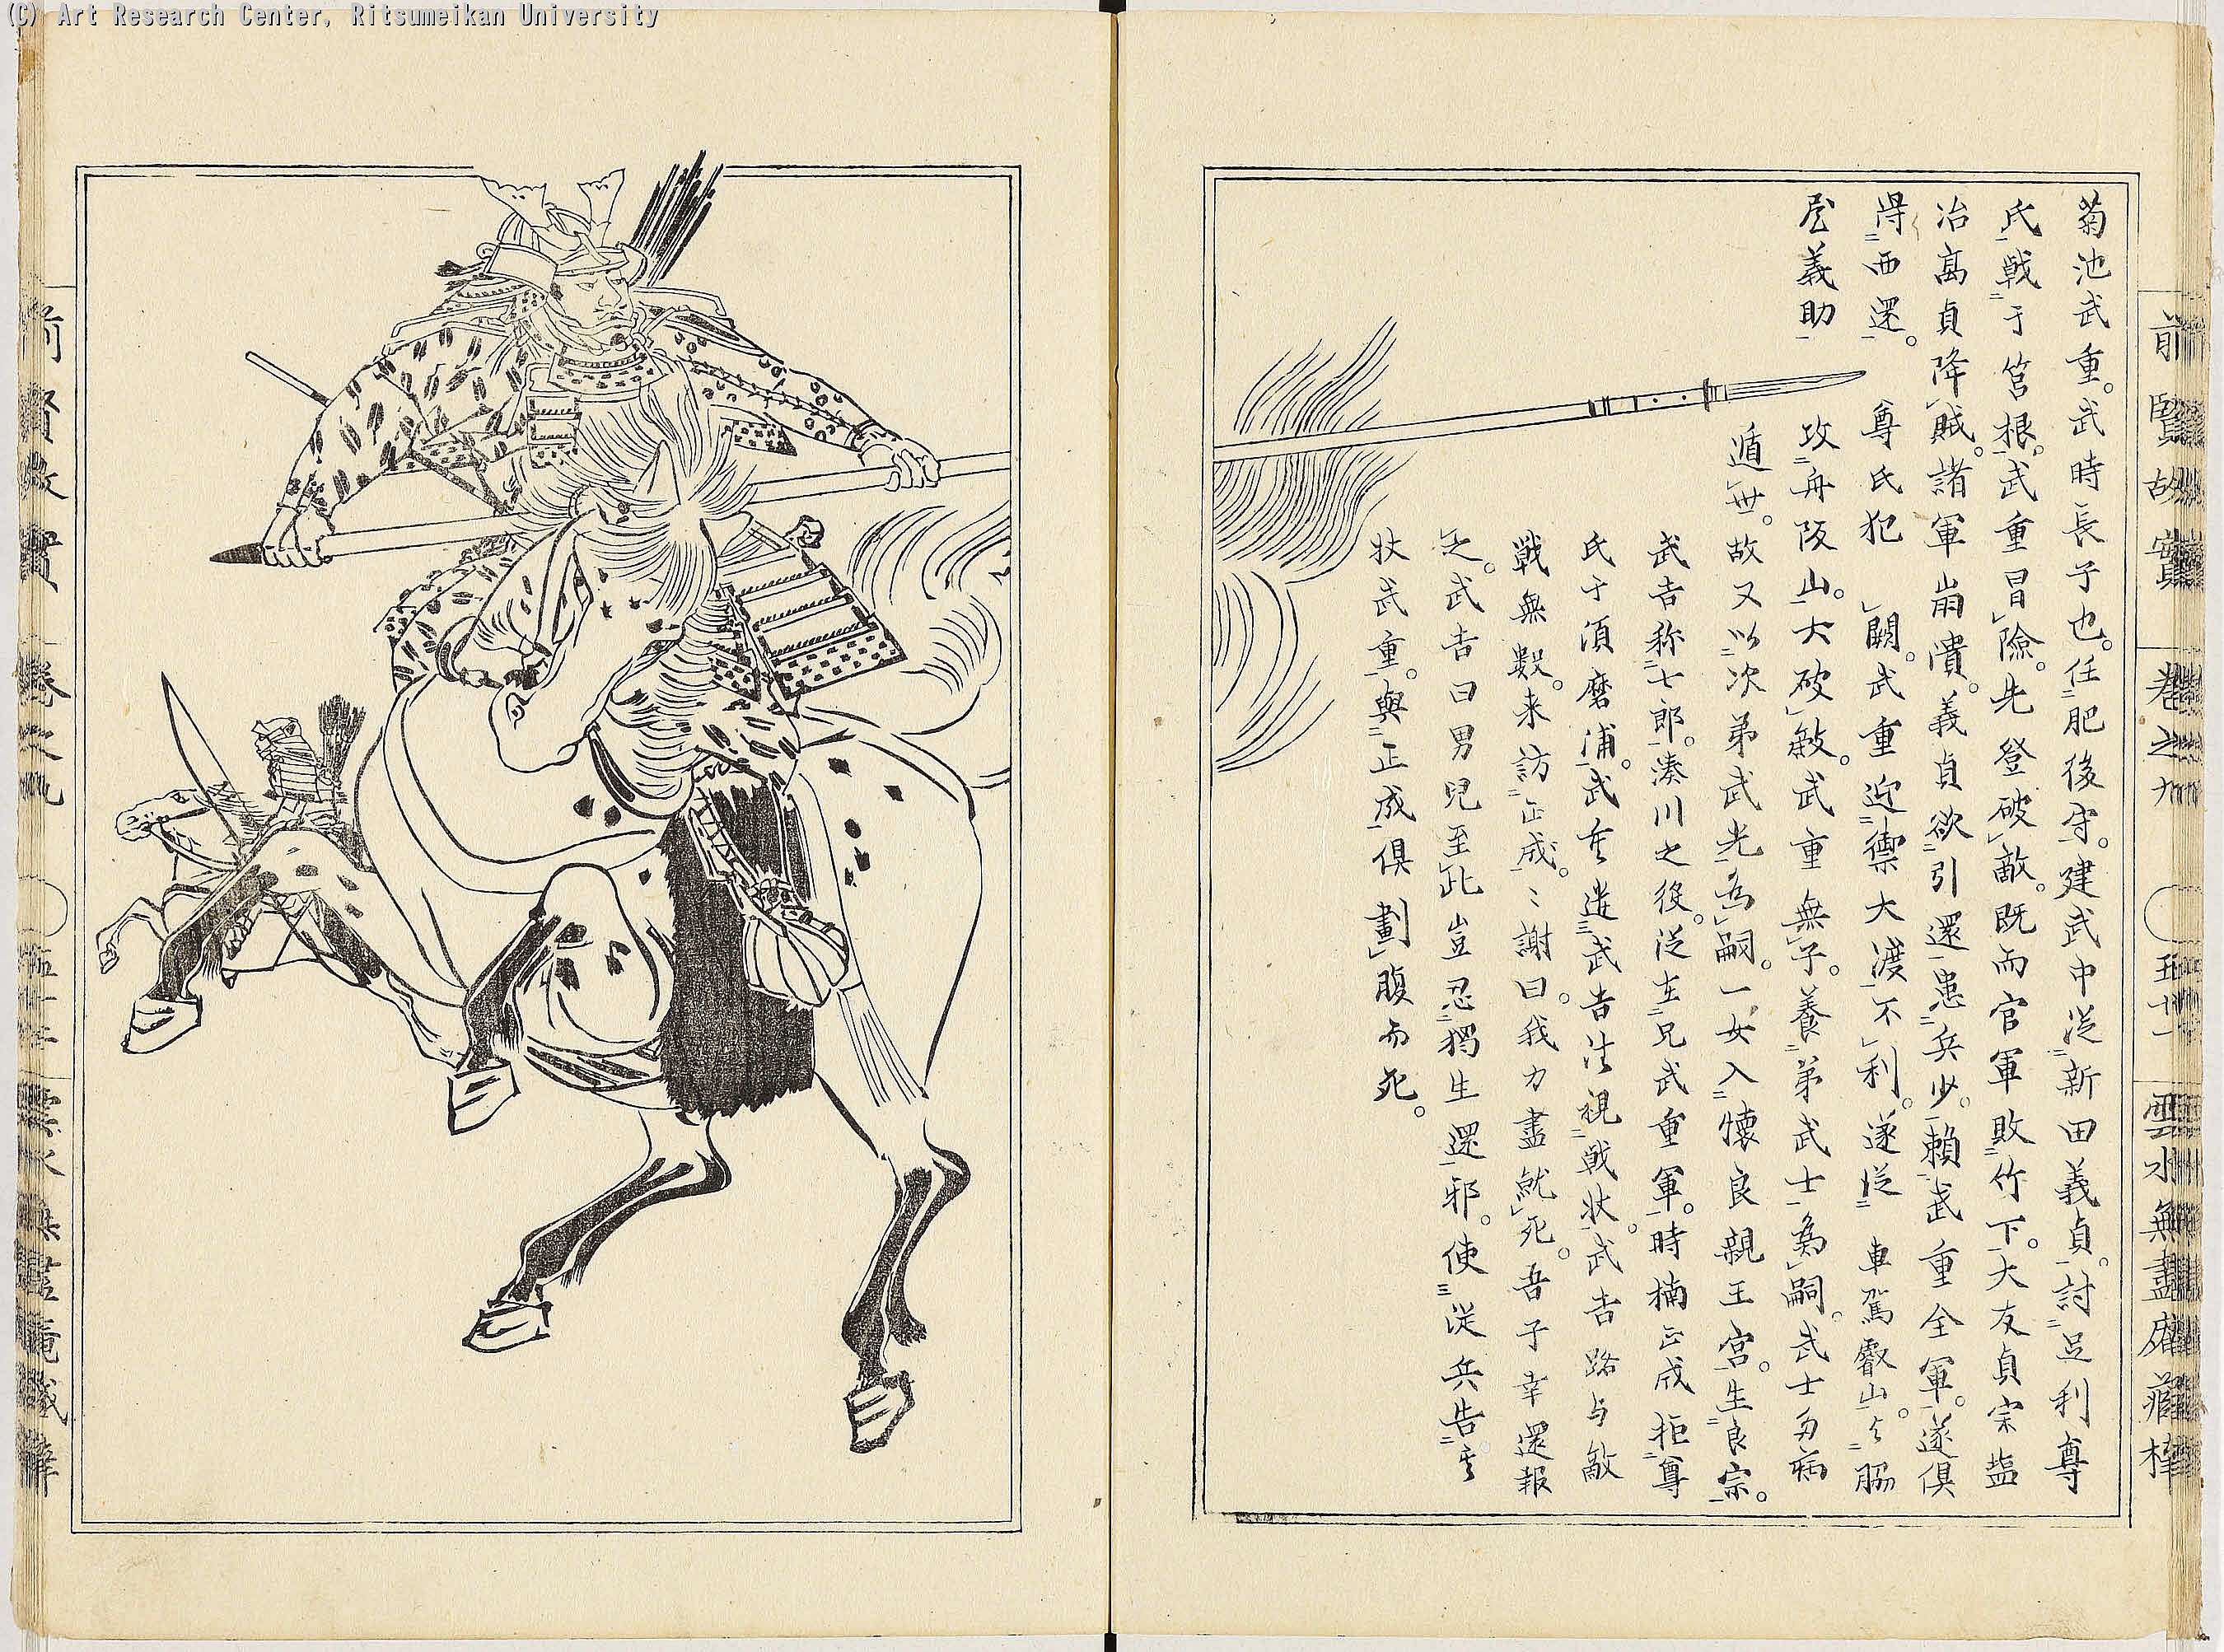 (C) Art Research Center, Ritsumeikan University
前賢故實 卷之九 五十一 雲水無盡庵藏梓
菊池武重。武時長子也。任肥後守。建武中從新田義貞。討足利尊
氏戰于筥根。武重冒險。先登破敵。既而官軍敗竹下。大友貞宗塩
冶高貞降賊。諸軍崩潰。義貞欲引還患兵少。賴武重全軍。遂俱
得西還。尊氏犯闕。武重近禦大渡不利。遂從車駕叡山。與脇
屋義助攻丹阪山。大破敵。武重無子。養弟武士為嗣。武士多病
遁世。故又以次弟武光為嗣。一女入懷良親王宮。生良宗。
武吉称七郎。湊川之役。從在兄武重軍。時楠正成拒尊
氏于須磨浦。武重遣武吉往視戰状。武吉路与敵
戰無數。来訪正成。〻謝曰。我力盡就死。吾子幸還報
之。武吉曰男兒至此豈忍獨生還邪。使從兵告其
状武重。與正成俱劃腹而死。
前賢故實 卷之九